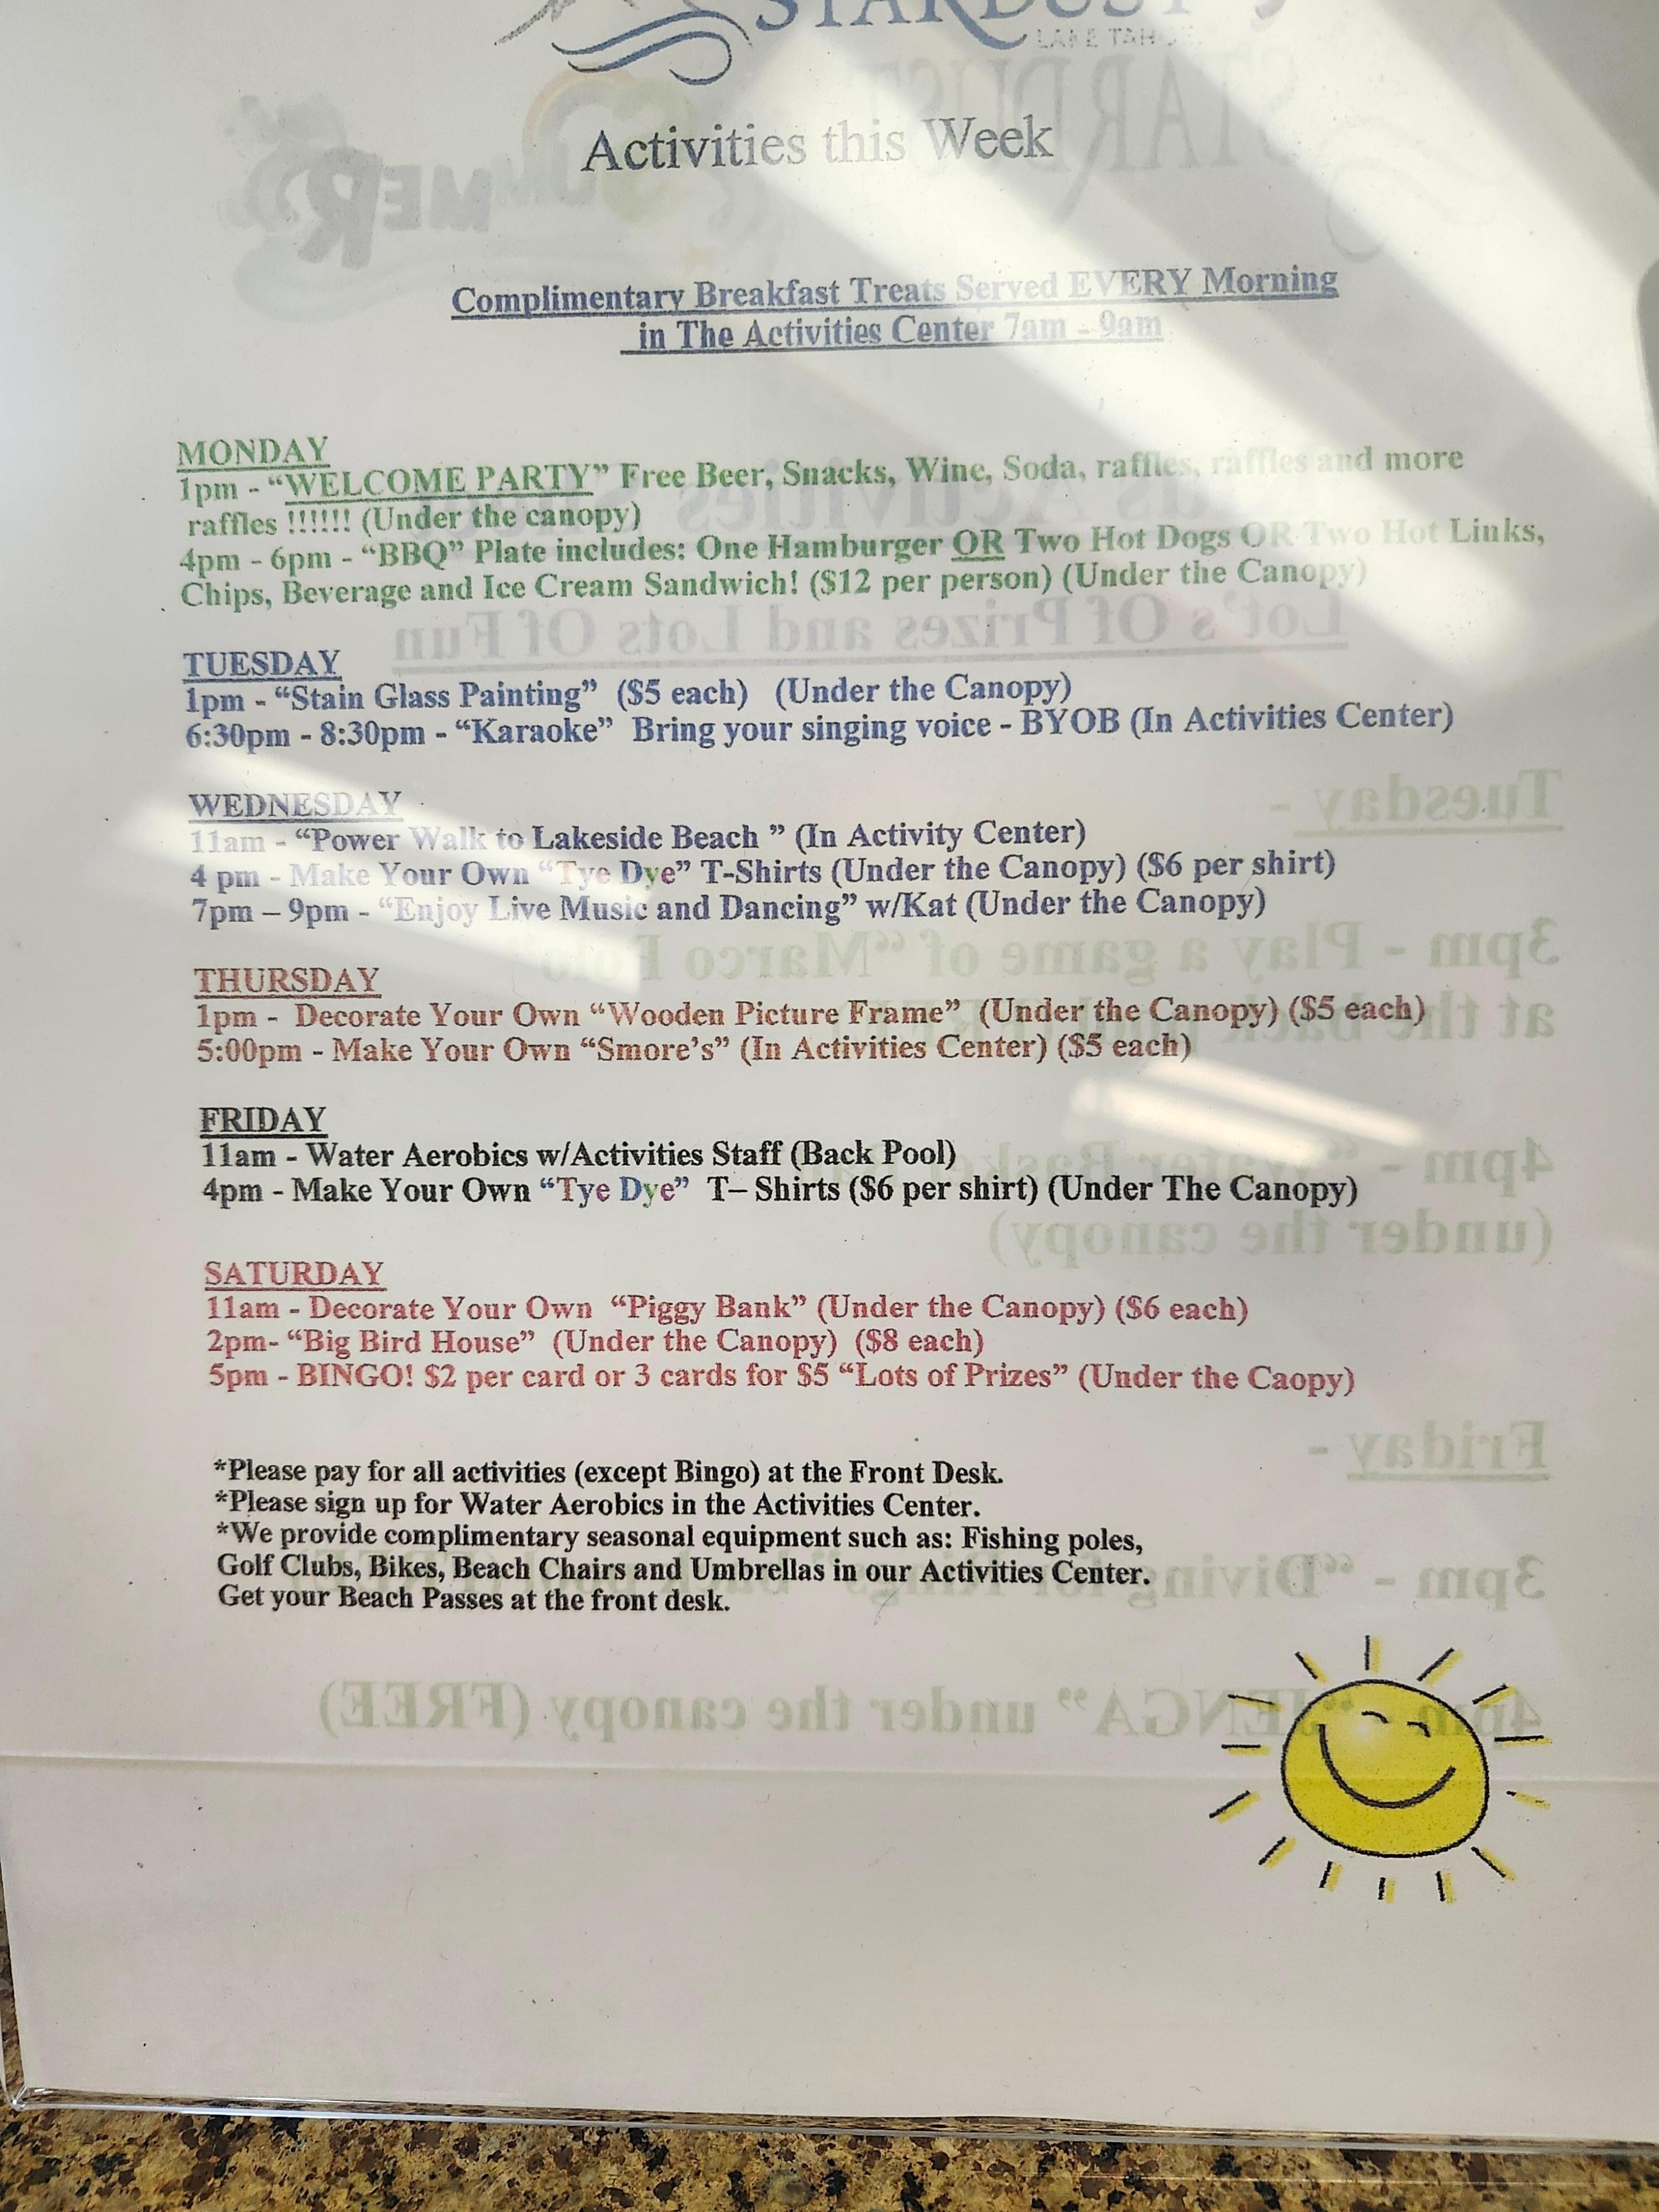 STARDUST
LAKE TAHOE
Activities this Week
Complimentary Breakfast Treats Served EVERY Morning
in The Activities Center 7am - 9am
MONDAY
1pm - “WELCOME PARTY” Free Beer, Snacks, Wine, Soda, raffles, raffles and more
raffles !!!!!! (Under the canopy)
4pm - 6pm - “BBQ” Plate includes: One Hamburger OR Two Hot Dogs OR Two Hot Links,
Chips, Beverage and Ice Cream Sandwich! ($12 per person) (Under the Canopy)
Lot's Of Prizes and Lots Of Fun
TUESDAY
1pm - “Stain Glass Painting” ($5 each) (Under the Canopy)
6:30pm - 8:30pm - “Karaoke” Bring your singing voice - BYOB (In Activities Center)
Tuesday -
WEDNESDAY
11am - “Power Walk to Lakeside Beach ” (In Activity Center)
4 pm - Make Your Own “Tye Dye” T-Shirts (Under the Canopy) ($6 per shirt)
7pm – 9pm - “Enjoy Live Music and Dancing” w/Kat (Under the Canopy)
3pm - Play a game of “Marco Polo”
at the back
THURSDAY
1pm - Decorate Your Own “Wooden Picture Frame” (Under the Canopy) ($5 each)
5:00pm - Make Your Own “Smore’s” (In Activities Center) ($5 each)
FRIDAY
11am - Water Aerobics w/Activities Staff (Back Pool)
4pm - Make Your Own “Tye Dye” T– Shirts ($6 per shirt) (Under The Canopy)
4pm - “Water Basket
(under the canopy)
SATURDAY
11am - Decorate Your Own “Piggy Bank” (Under the Canopy) ($6 each)
2pm- “Big Bird House” (Under the Canopy) ($8 each)
5pm - BINGO! $2 per card or 3 cards for $5 “Lots of Prizes” (Under the Caopy)
Friday -
*Please pay for all activities (except Bingo) at the Front Desk.
*Please sign up for Water Aerobics in the Activities Center.
*We provide complimentary seasonal equipment such as: Fishing poles,
Golf Clubs, Bikes, Beach Chairs and Umbrellas in our Activities Center.
Get your Beach Passes at the front desk.
3pm - “Diving
4pm “JENGA” under the canopy (FREE)